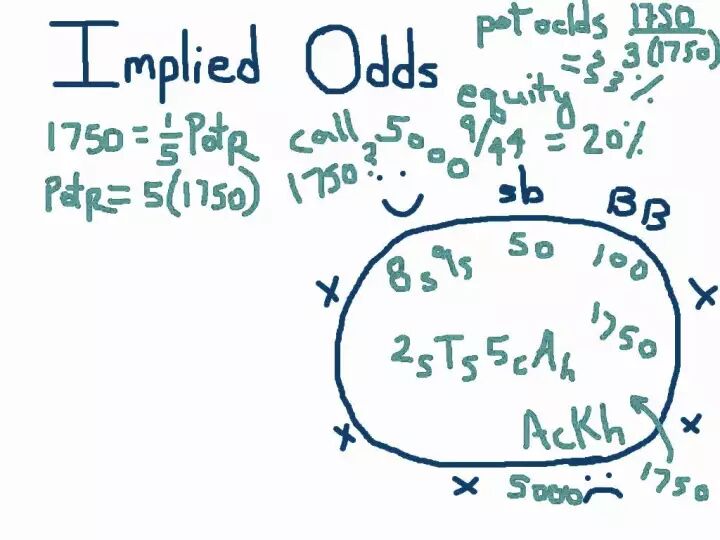 Implied Odds
pot odds 1750/3(1750)
= 33%
equity
9/44 = 20%
1750 = 1/5 PotR
PotR = 5(1750)
call 5000
1750?
sb BB
8s9s 50 100
2sTs5cAh 1750
AcKh
5000 1750